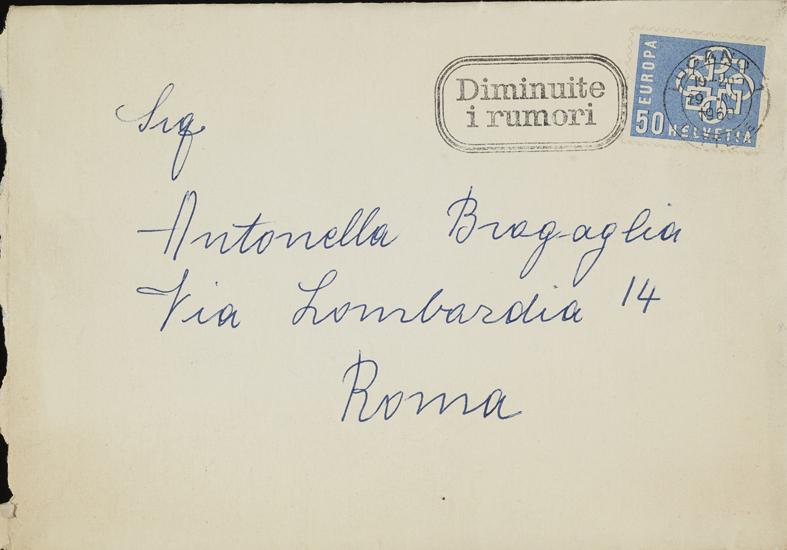 Diminuite
i rumori
EUROPA
50 HELVETIA
19-20
29
Sig
Antonella Bragaglia
Via Lombardia 14
Roma